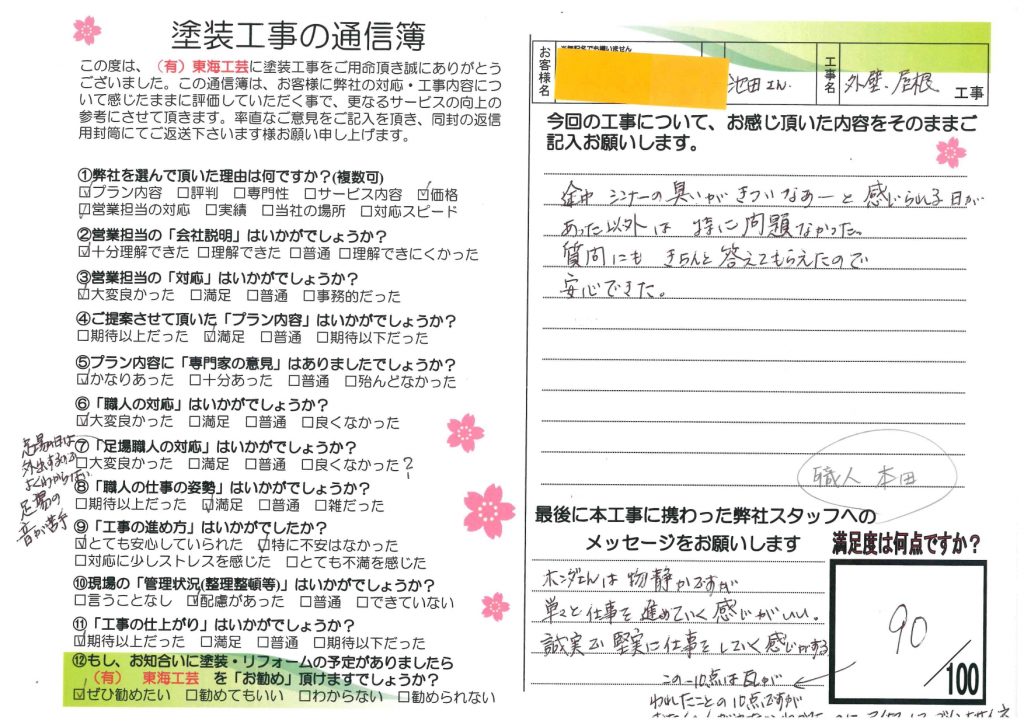 塗装工事の通信簿
この度は、（有）東海工芸に塗装工事をご用命頂き誠にありがとう
ございました。この通信簿は、お客様に弊社の対応・工事内容につ
いて感じたままに評価していただく事で、更なるサービスの向上の
参考にさせて頂きます。率直なご意見をご記入を頂き、同封の返信
用封筒にてご返送下さいます様お願い申し上げます。
①弊社を選んで頂いた理由は何ですか？(複数可)
☑プラン内容 □評判 □専門性 □サービス内容 ☑価格
☑営業担当の対応 □実績 □当社の場所 □対応スピード
②営業担当の「会社説明」はいかがでしょうか？
☑十分理解できた □理解できた □普通 □理解できにくかった
③営業担当の「対応」はいかがでしょうか？
☑大変良かった □満足 □普通 □事務的だった
④ご提案させて頂いた「プラン内容」はいかがでしょうか？
□期待以上だった ☑満足 □普通 □期待以下だった
⑤プラン内容に「専門家の意見」はありましたでしょうか？
☑かなりあった □十分あった □普通 □殆んどなかった
⑥「職人の対応」はいかがでしょうか？
☑大変良かった □満足 □普通 □良くなかった
⑦「足場職人の対応」はいかがでしょうか？
□大変良かった □満足 □普通 □良くなかった ?
足場の日は
外出
よくわからない
足場の
音が苦手
⑧「職人の仕事の姿勢」はいかがでしょうか？
□期待以上だった ☑満足 □普通 □雑だった
⑨「工事の進め方」はいかがでしたか？
☑とても安心していられた ☑特に不安はなかった
□対応に少しストレスを感じた □とても不満を感じた
⑩現場の「管理状況(整理整頓等)」はいかがでしょうか？
□言うことなし ☑配慮があった □普通 □できていない
⑪「工事の仕上がり」はいかがでしょうか？
☑期待以上だった □満足 □普通 □期待以下だった
⑫もし、お知合いに塗装・リフォームの予定がありましたら
（有） 東海工芸 を「お勧め」頂けますでしょうか？
☑ぜひ勧めたい □勧めてもいい □わからない □勧められない
お客様名
※無記名でも構いません
池田さん
工事名
外壁、屋根 工事
今回の工事について、お感じ頂いた内容をそのままご
記入お願いします。
途中 シンナーの臭いが きついなあーと 感じられる日が
あった以外は 特に問題なかった。
質問にも きちんと 答えてもらえたので
安心できた。
職人 本田
最後に本工事に携わった弊社スタッフへの
メッセージをお願いします
ホンダさんは 物静かですが
単々と仕事を進めていく感じがいい。
誠実で堅実に仕事をしていく感じがする
この-10点は瓦が
われたことの10点ですが
満足度は何点ですか？
90
/100